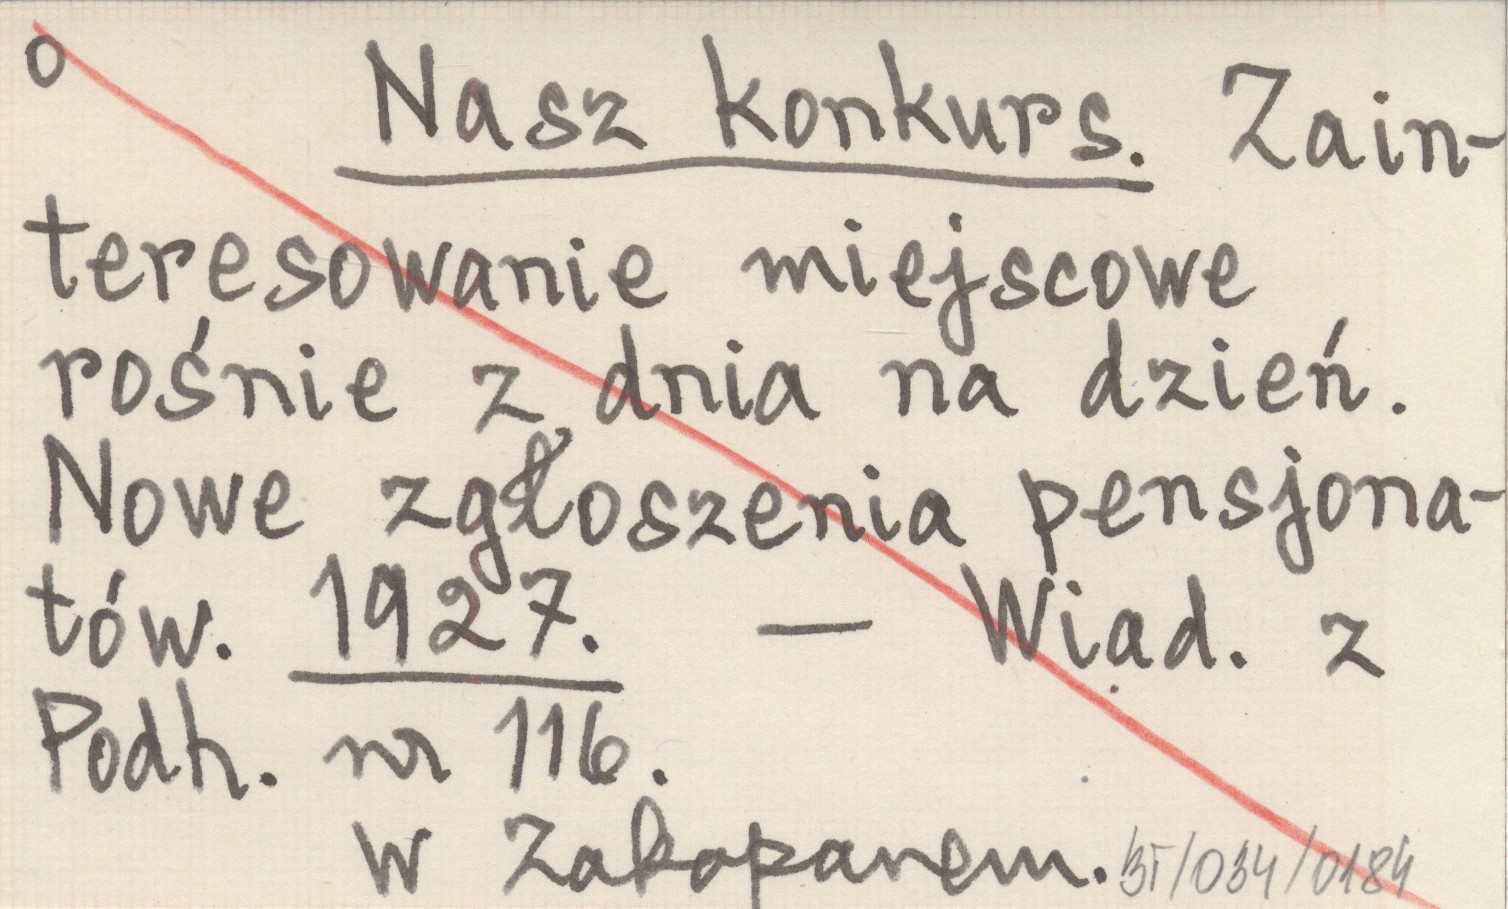 o Nasz konkurs. Zain-
teresowanie miejscowe
rośnie z dnia na dzień.
Nowe zgłoszenia pensjona-
tów. 1927. — Wiad. z
Podh. nr 116.
w Zakopanem. BT/034/0184